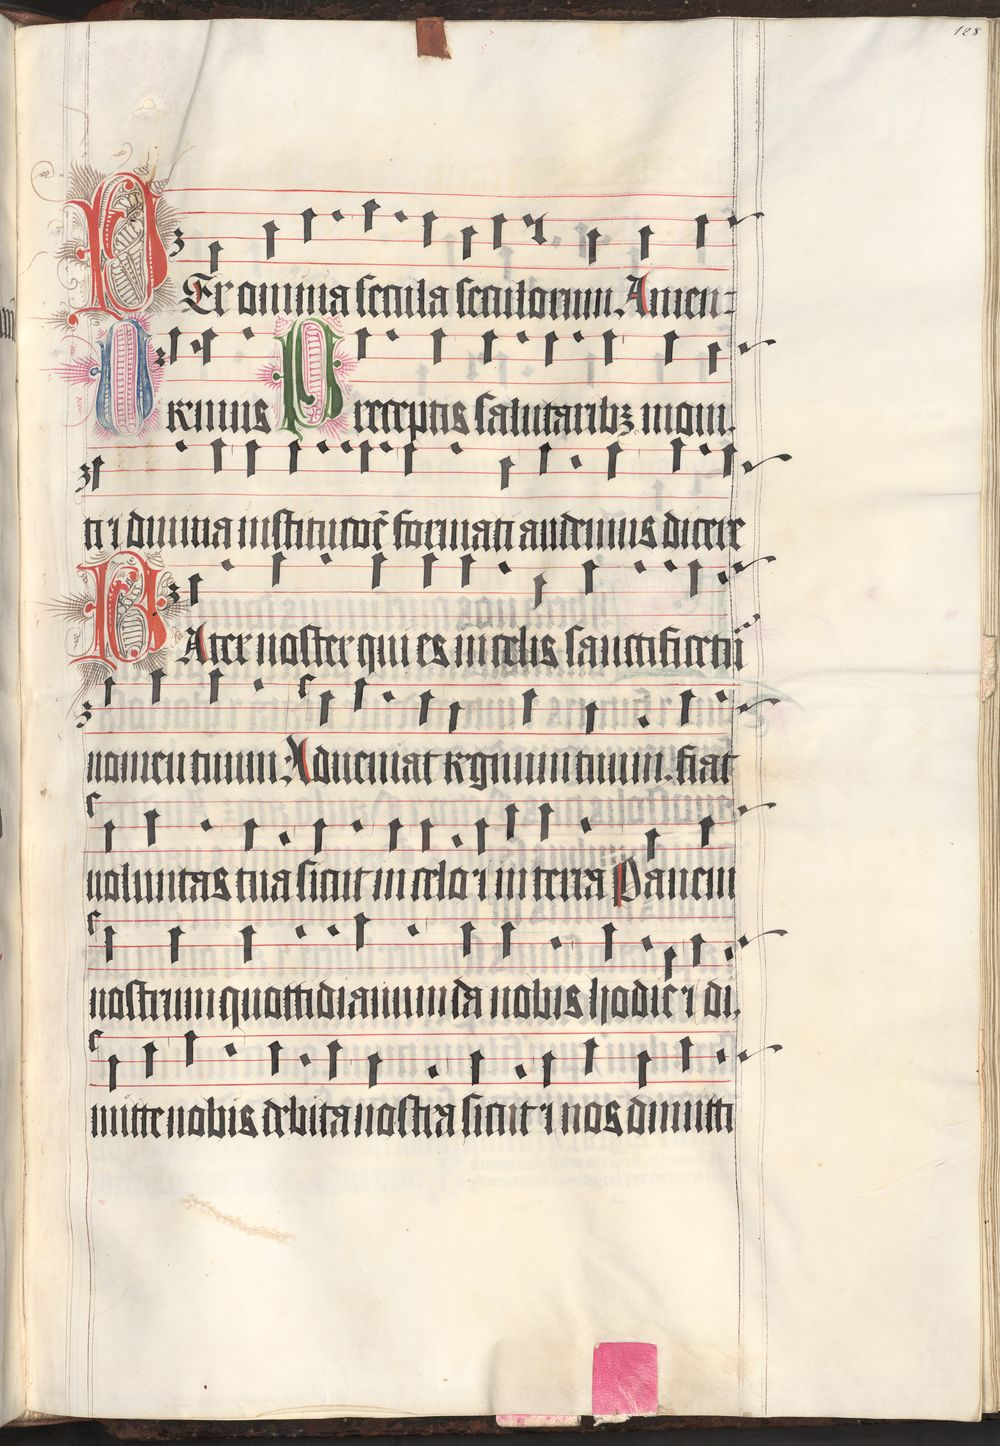 128
PEr omnia secula seculorum. Amen
Oremus Preceptis salutaribꝫ moni
ti ⁊ diuina institutōe formati audemus dicere
PAter noster qui es in celis sanctificetur
nomen tuum. Adueniat regnum tuum. fiat
voluntas tua sicut in celo ⁊ in terra Panem
nostrum quottidianum da nobis hodie ⁊ di
mitte nobis debita nostra sicut ⁊ nos dimitti